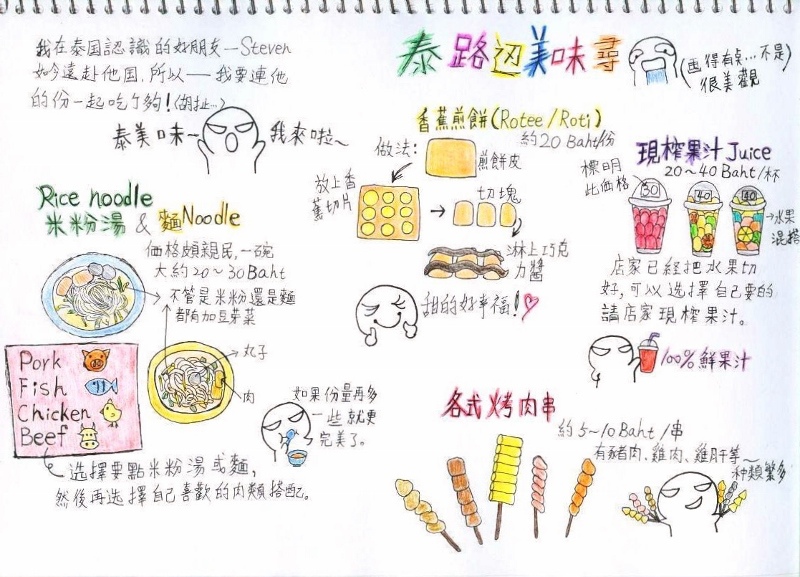 我在泰国認識的好朋友—Steven
如今遠赴他国,所以——我要連他
的份一起吃ㄅ夠!(胡扯…)
泰美味~
我來啦~
泰路边美味尋
(画得有点…不是
很美觀)
香蕉煎餅(Rotee/Roti)
約20 Baht/份
做法:
煎餅皮
放上香
蕉切片
切塊
淋上巧克
力醬
甜的好幸福!
現榨果汁Juice
20~40 Baht/杯
標明
此価格
30
40
40
水果
混搭
店家已経把水果切
好,可以选擇自己要的
請店家現榨果汁。
100%鮮果汁
Rice noodle
米粉湯 & 麵Noodle
価格頗親民,一碗
大約20~30Baht
不管是米粉還是麵
都有加豆芽菜
丸子
肉
Pork
Fish
Chicken
Beef
如果份量再多
一些就更
完美了。
选擇要點米粉湯或麵,
然後再选擇自己喜歡的肉類搭配。
各式烤肉串
約5~10Baht/串
有豬肉、雞肉、雞肝等~
种類繁多